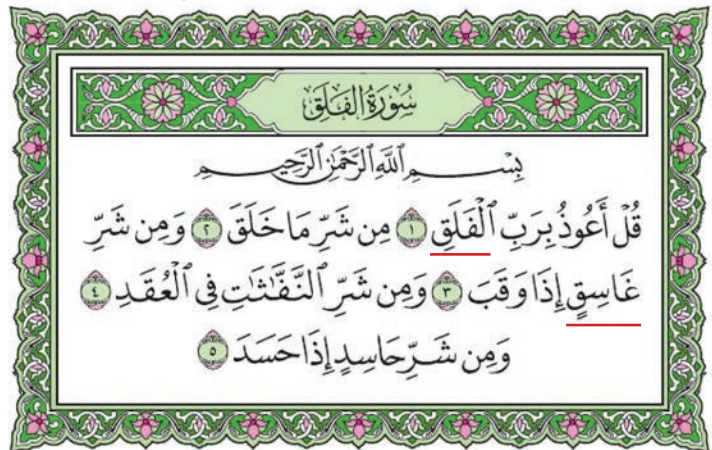 سُورَةُ الفَلَقِ
بِسْمِ اللَّهِ الرَّحْمَٰنِ الرَّحِيمِ
قُلْ أَعُوذُ بِرَبِّ ٱلْفَلَقِ ١ مِن شَرِّ مَا خَلَقَ ٢ وَمِن شَرِّ
غَاسِقٍ إِذَا وَقَبَ ٣ وَمِن شَرِّ ٱلنَّفَّٰثَٰتِ فِى ٱلْعُقَدِ ٤
وَمِن شَرِّ حَاسِدٍ إِذَا حَسَدَ ٥